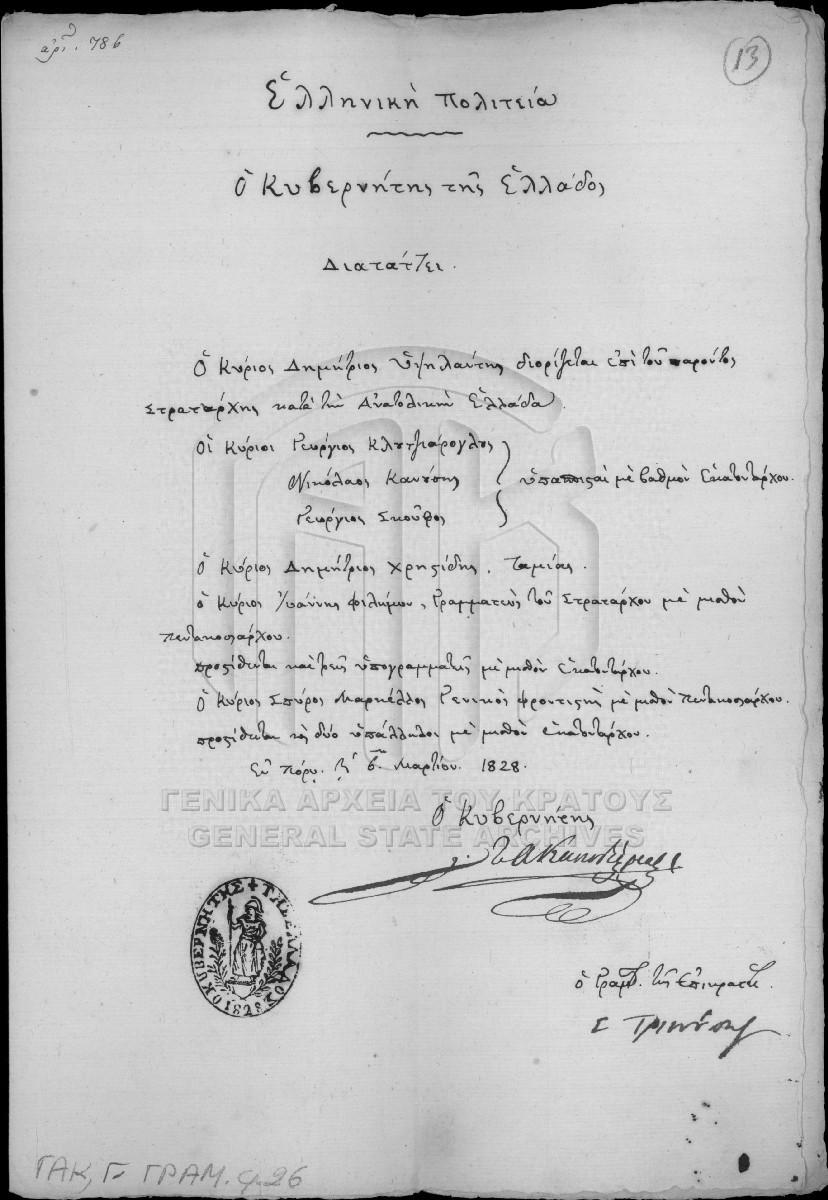 ἀρι. 786
13
Ἑλληνικὴ πολιτεία
Ὁ Κυβερνήτης τῆς Ἑλλάδος
Διατάττει.
Ὁ Κύριος Δημήτριος Ὑψηλάντης διορίζεται ἐπὶ τοῦ παρόντος
Στρατάρχης κατὰ τὴν Ἀνατολικὴν Ἑλλάδα.
Οἱ Κύριοι Γεώργιος
Νικόλαος Κανύσης ὑπασπισταὶ μὲ βαθμὸν ἑκατοντάρχου.
Γεώργιος Σκοῦφος
Ὁ Κύριος Δημήτριος Χρηστίδης, Ταμίας.
ὁ Κύριος Ἰωάννης Φιλήμων, Γραμματεὺς τοῦ Στρατάρχου μὲ μισθὸν
πεντακοσιάρχου.
προστίθενται καὶ τρεῖς ὑπογραμματεῖς μὲ μισθὸν ἑκατοντάρχου.
Ὁ Κύριος Σπύρος Μαρκέλλος Γενικὸς φροντιστὴς μὲ μισθὸν πεντακοσιάρχου.
προστίθενται καὶ δύο ὑπάλληλοι μὲ μισθὸν ἑκατοντάρχου.
Ἐν Πόρῳ. τῇ Μαρτίου. 1828.
ΓΕΝΙΚΑ ΑΡΧΕΙΑ ΤΟΥ ΚΡΑΤΟΥΣ
GENERAL STATE ARCHIVES
Ὁ Κυβερνήτης
Ι. Α. Καποδίστριας
Ο ΚΥΒΕΡΝΗΤΗΣ ΤΗΣ ΕΛΛΑΔΟΣ 1828
ὁ Γραμ. τῆς Ἐπικρατ.
Σ Τρικούπης
ΓΑΚ, Γ. ΓΡΑΜ. φ. 26